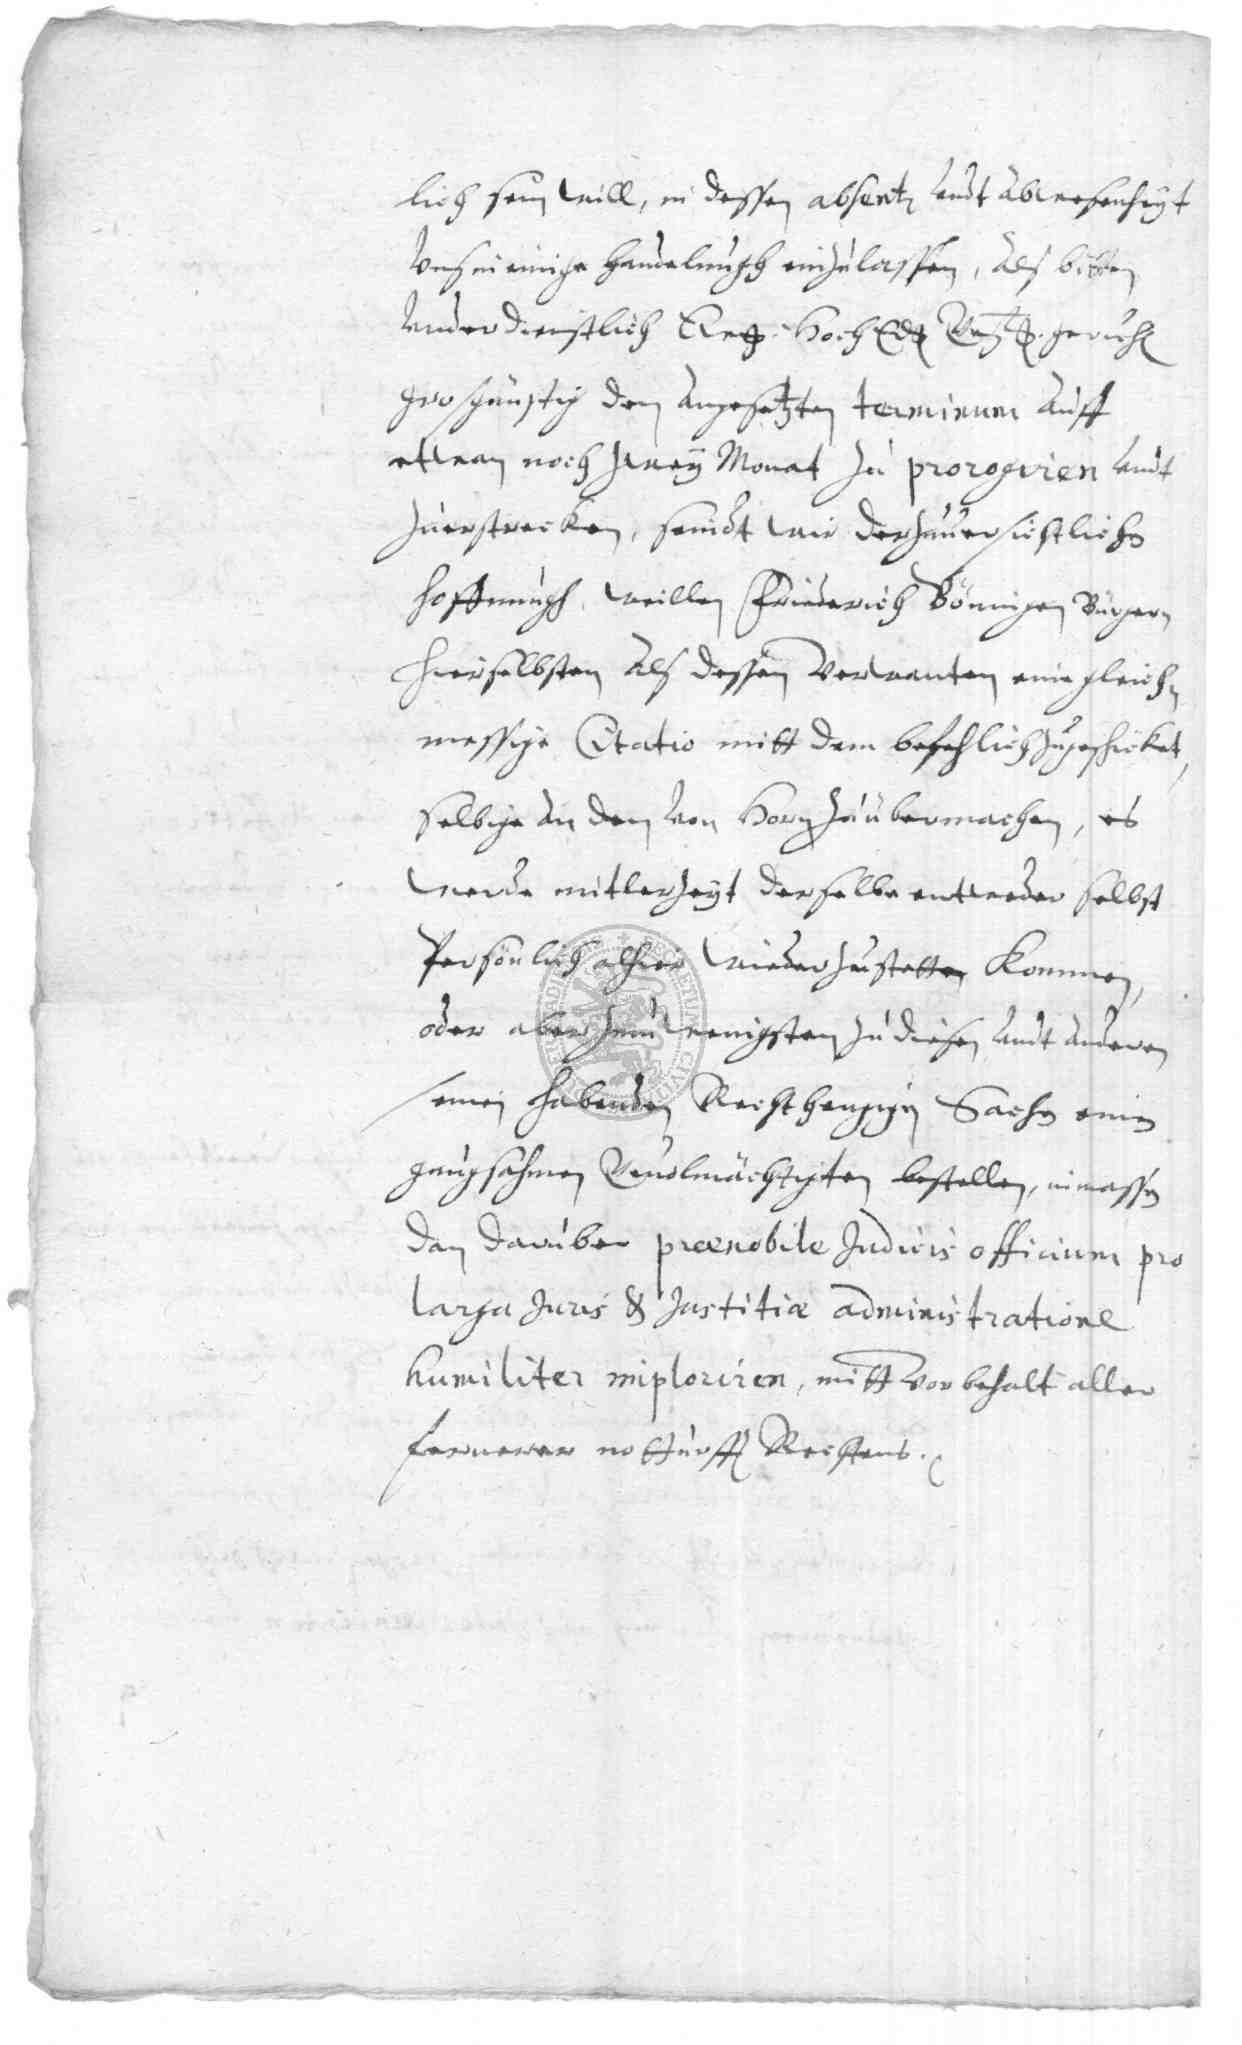 lich sein will, in dessen absentz undt abwesenheyt
uns in einige handelungh einzulassen, als bitten
underdienstlich Ew. Hoch Ed. geruhe
grosgünstig den angesetzten terminum auff
etwan noch zwey Monat zu prorogiren undt
zuerstrecken, seindt wir der zuversichtlichen
hoffnungh, weillen Friederich Böningen Bürgern
hierselbsten als dessen verwanten eine gleich
messige Citatio mitt dem befehlich zugeschicket,
selbige an den von Horn zu übermachen, es
werde mitlerzeyt derselbe entweder selbst
Persönlich alhier wieder zustetten Kommen,
oder aber zum wenigsten zu diesen undt anderen
seinen habenden Rechthengigen Sachen einen
gnugsahmen Bevolmächtigten bestellen, inmassen
dan darüber prænobile Judicis officium pro
larga Juris & Justitiæ administratione
humiliter imploriren, mitt vorbehalt aller
fernerer notturfft Rechtens.